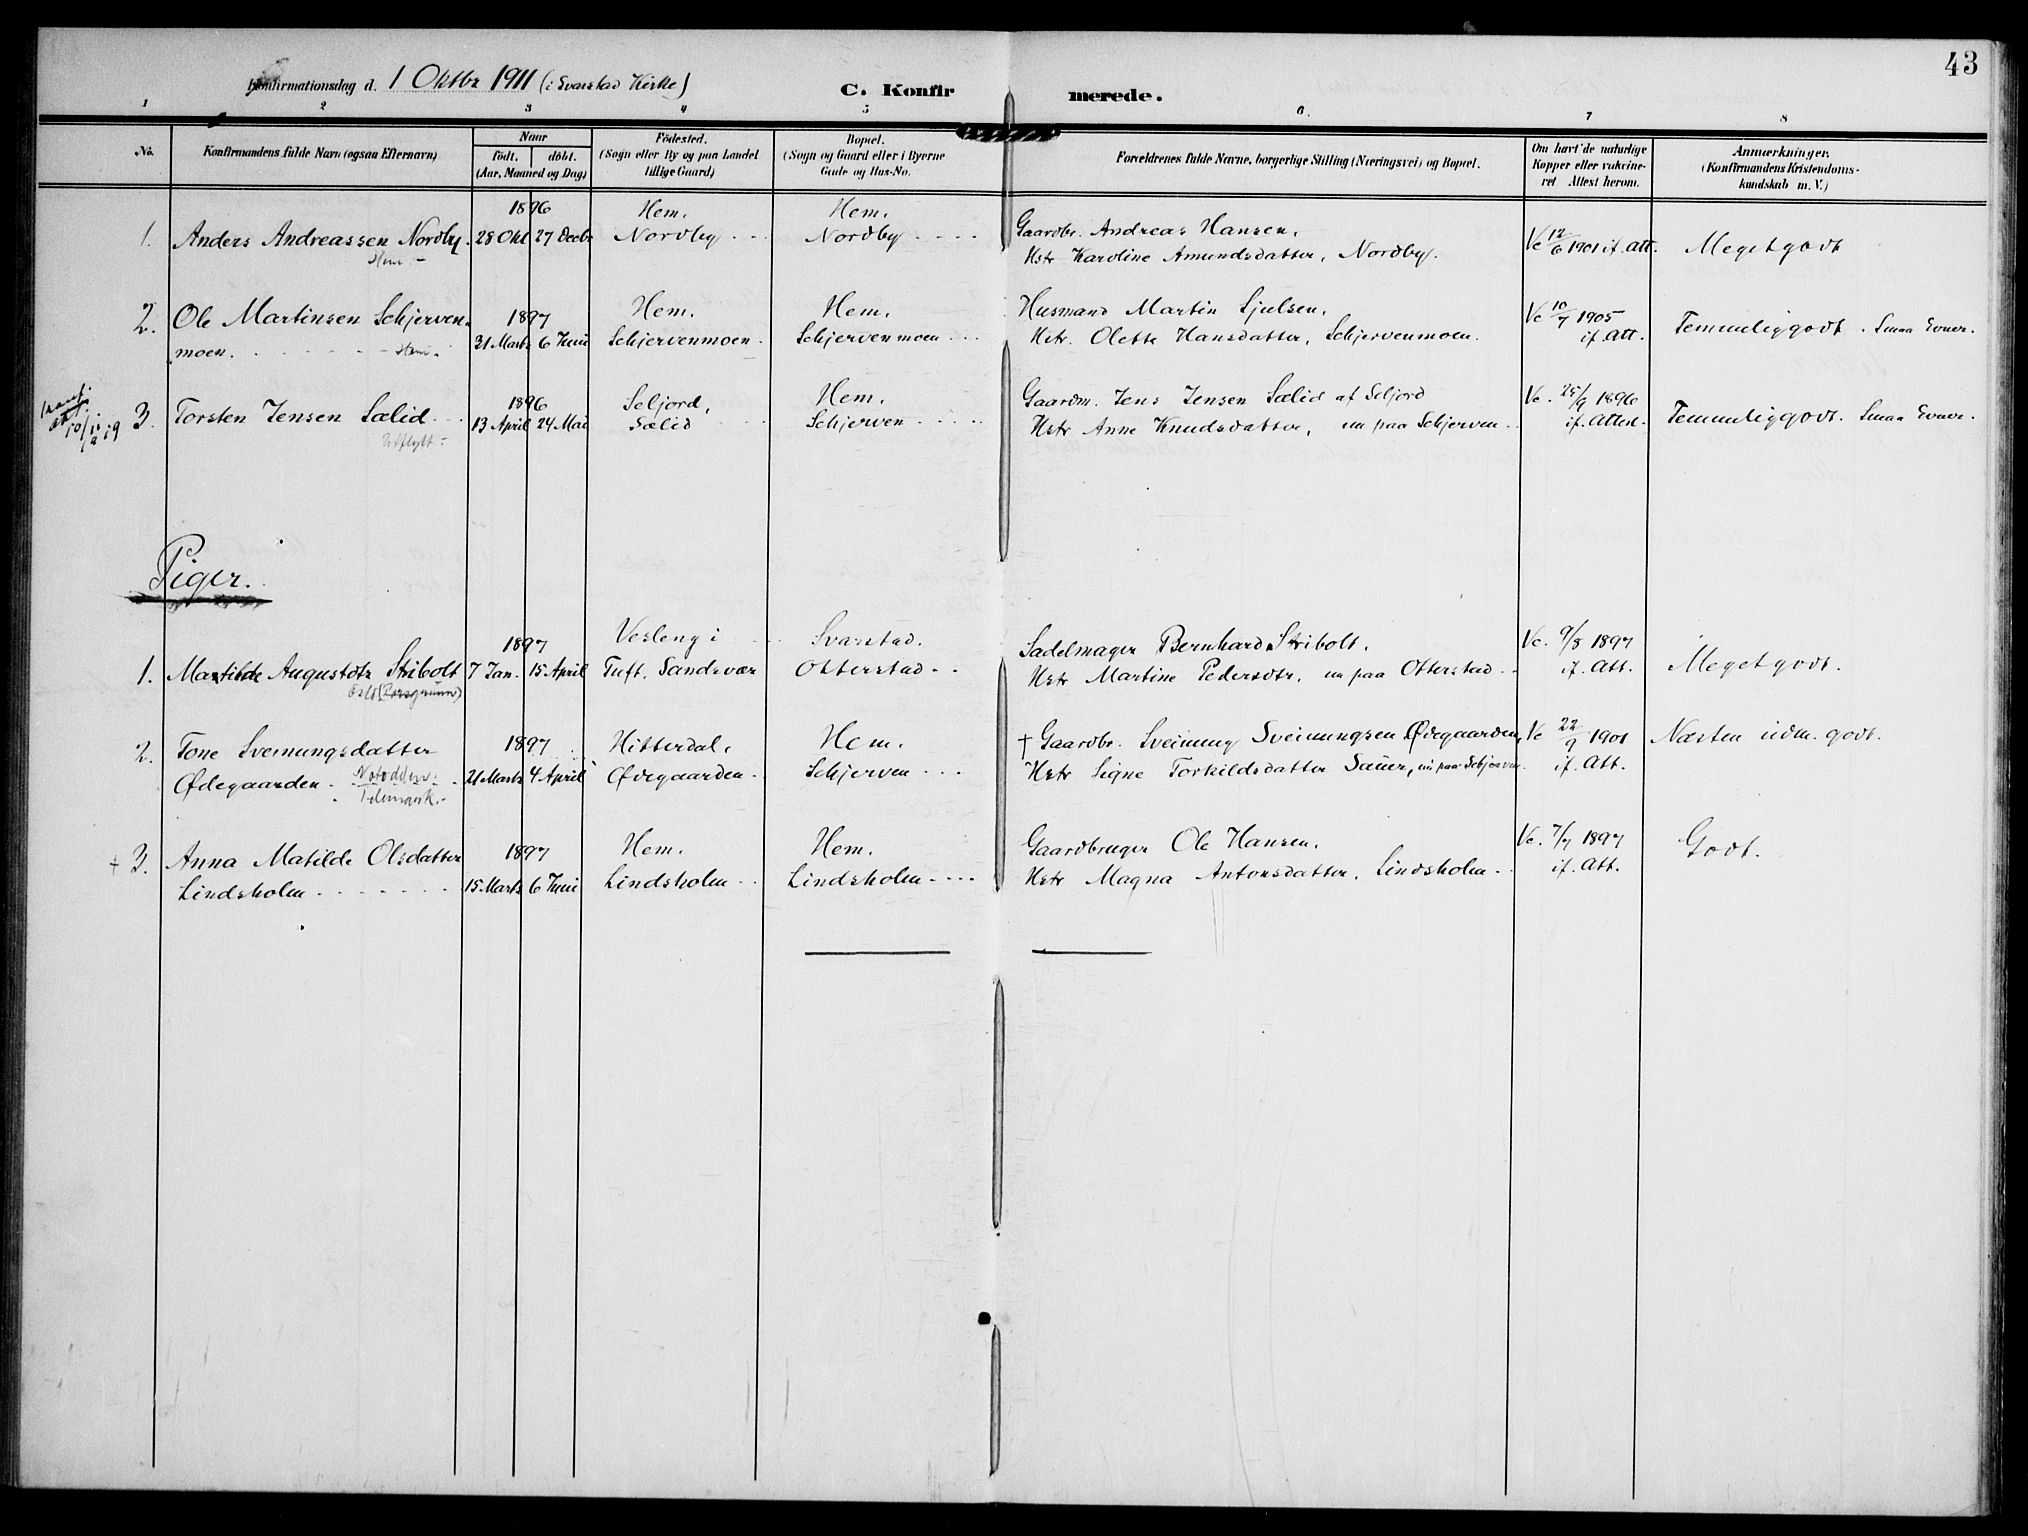 43
Konfirmationsdag d. 1 Oktbr 1911 (i Svarstad Kirke)
C. Konfirmerede.
1 2 3 4 5 6. 7 8
No.
Konfirmandens fulde Navn (ogsaa Efternavn)
Naar
födt. döbt.
(Aar, Maaned og Dag)
Födested.
(Sogn eller By og paa Landet
tillige Gaard)
Bopæl.
(Sogn og Gaard eller i Byerne
Gade og Hus-No.
Forældrenes fulde Navne, borgerlige Stilling (Næringsvei) og Bopæl.
Om havt de naturlige
Kopper eller vakcine-
ret Attest herom.
Anmærkninger.
(Konfirmandens Kristendoms-
kundskab m. V.)
1896 Hem. Hem. Gaardbr. Andreas Hansen.
1. Anders Andreassen Nordby. 28 Okt 27 Decbr Nordby Nordby Hstr Karoline Amundsdatter, Nordby. Vc 12/6 1901 if. Att. Meget godt
Hem.
2. Ole Martinsen Schjerven- 1897 Hem. Hem. Husmand Martin Sjulsen. Vc 10/7 1905
moen. Hem. 31 Marts 6 Juni Schjervenmoen Schjervenmoen Hstr. Olette Hansdatter, Schjervenmoen. if. Att. Temmelig godt. Smaa Evner.
1896 Seljord, Hem. Gaardm. Jens Jensen Sælid af Seljord Vc. 25/9 1896
3. Torsten Jensen Sælid 13 April 24 Mai Sælid Schjerven Hstr Anne Knudsdatter, nu paa Schjerven if. Attest. Temmelig godt. Smaa Evner.
Utflytt
Piger.
1897 Vesleng i Svarstad. Sadelmager Bernhard Stribolt. Vc. 9/8 1897
1. Matilde Augustdtr Stribolt 7 Jan. 15 April Tuft, Sandsvær Otterstad Hstr Martine Pedersdtr, nu paa Otterstad if. Att. Meget godt.
Oslo (Porsgrunn)
2. Tone Sveinungsdatter 1897 Hitterdal, Hem. † Gaardbr. Sveinung Sveinungsen Ødegaarden, Vc 22/9 1901 Næsten udm. godt.
Ødegaarden Notodden. 21 Marts 4 April Ødegaarden Schjerven Hstr Signe Torkildsdatter Sauer, nu paa Schjerven if. Att.
Telemark.
† 3. Anna Matilde Olsdatter 1897 Hem. Hem. Gaardbruger Ole Hansen. Vc. 7/7 1897 Godt.
Lindsholm 15 Marts 6 Juni Lindsholm Lindsholm Hstr Magna Antonsdatter, Lindsholm if. Att.